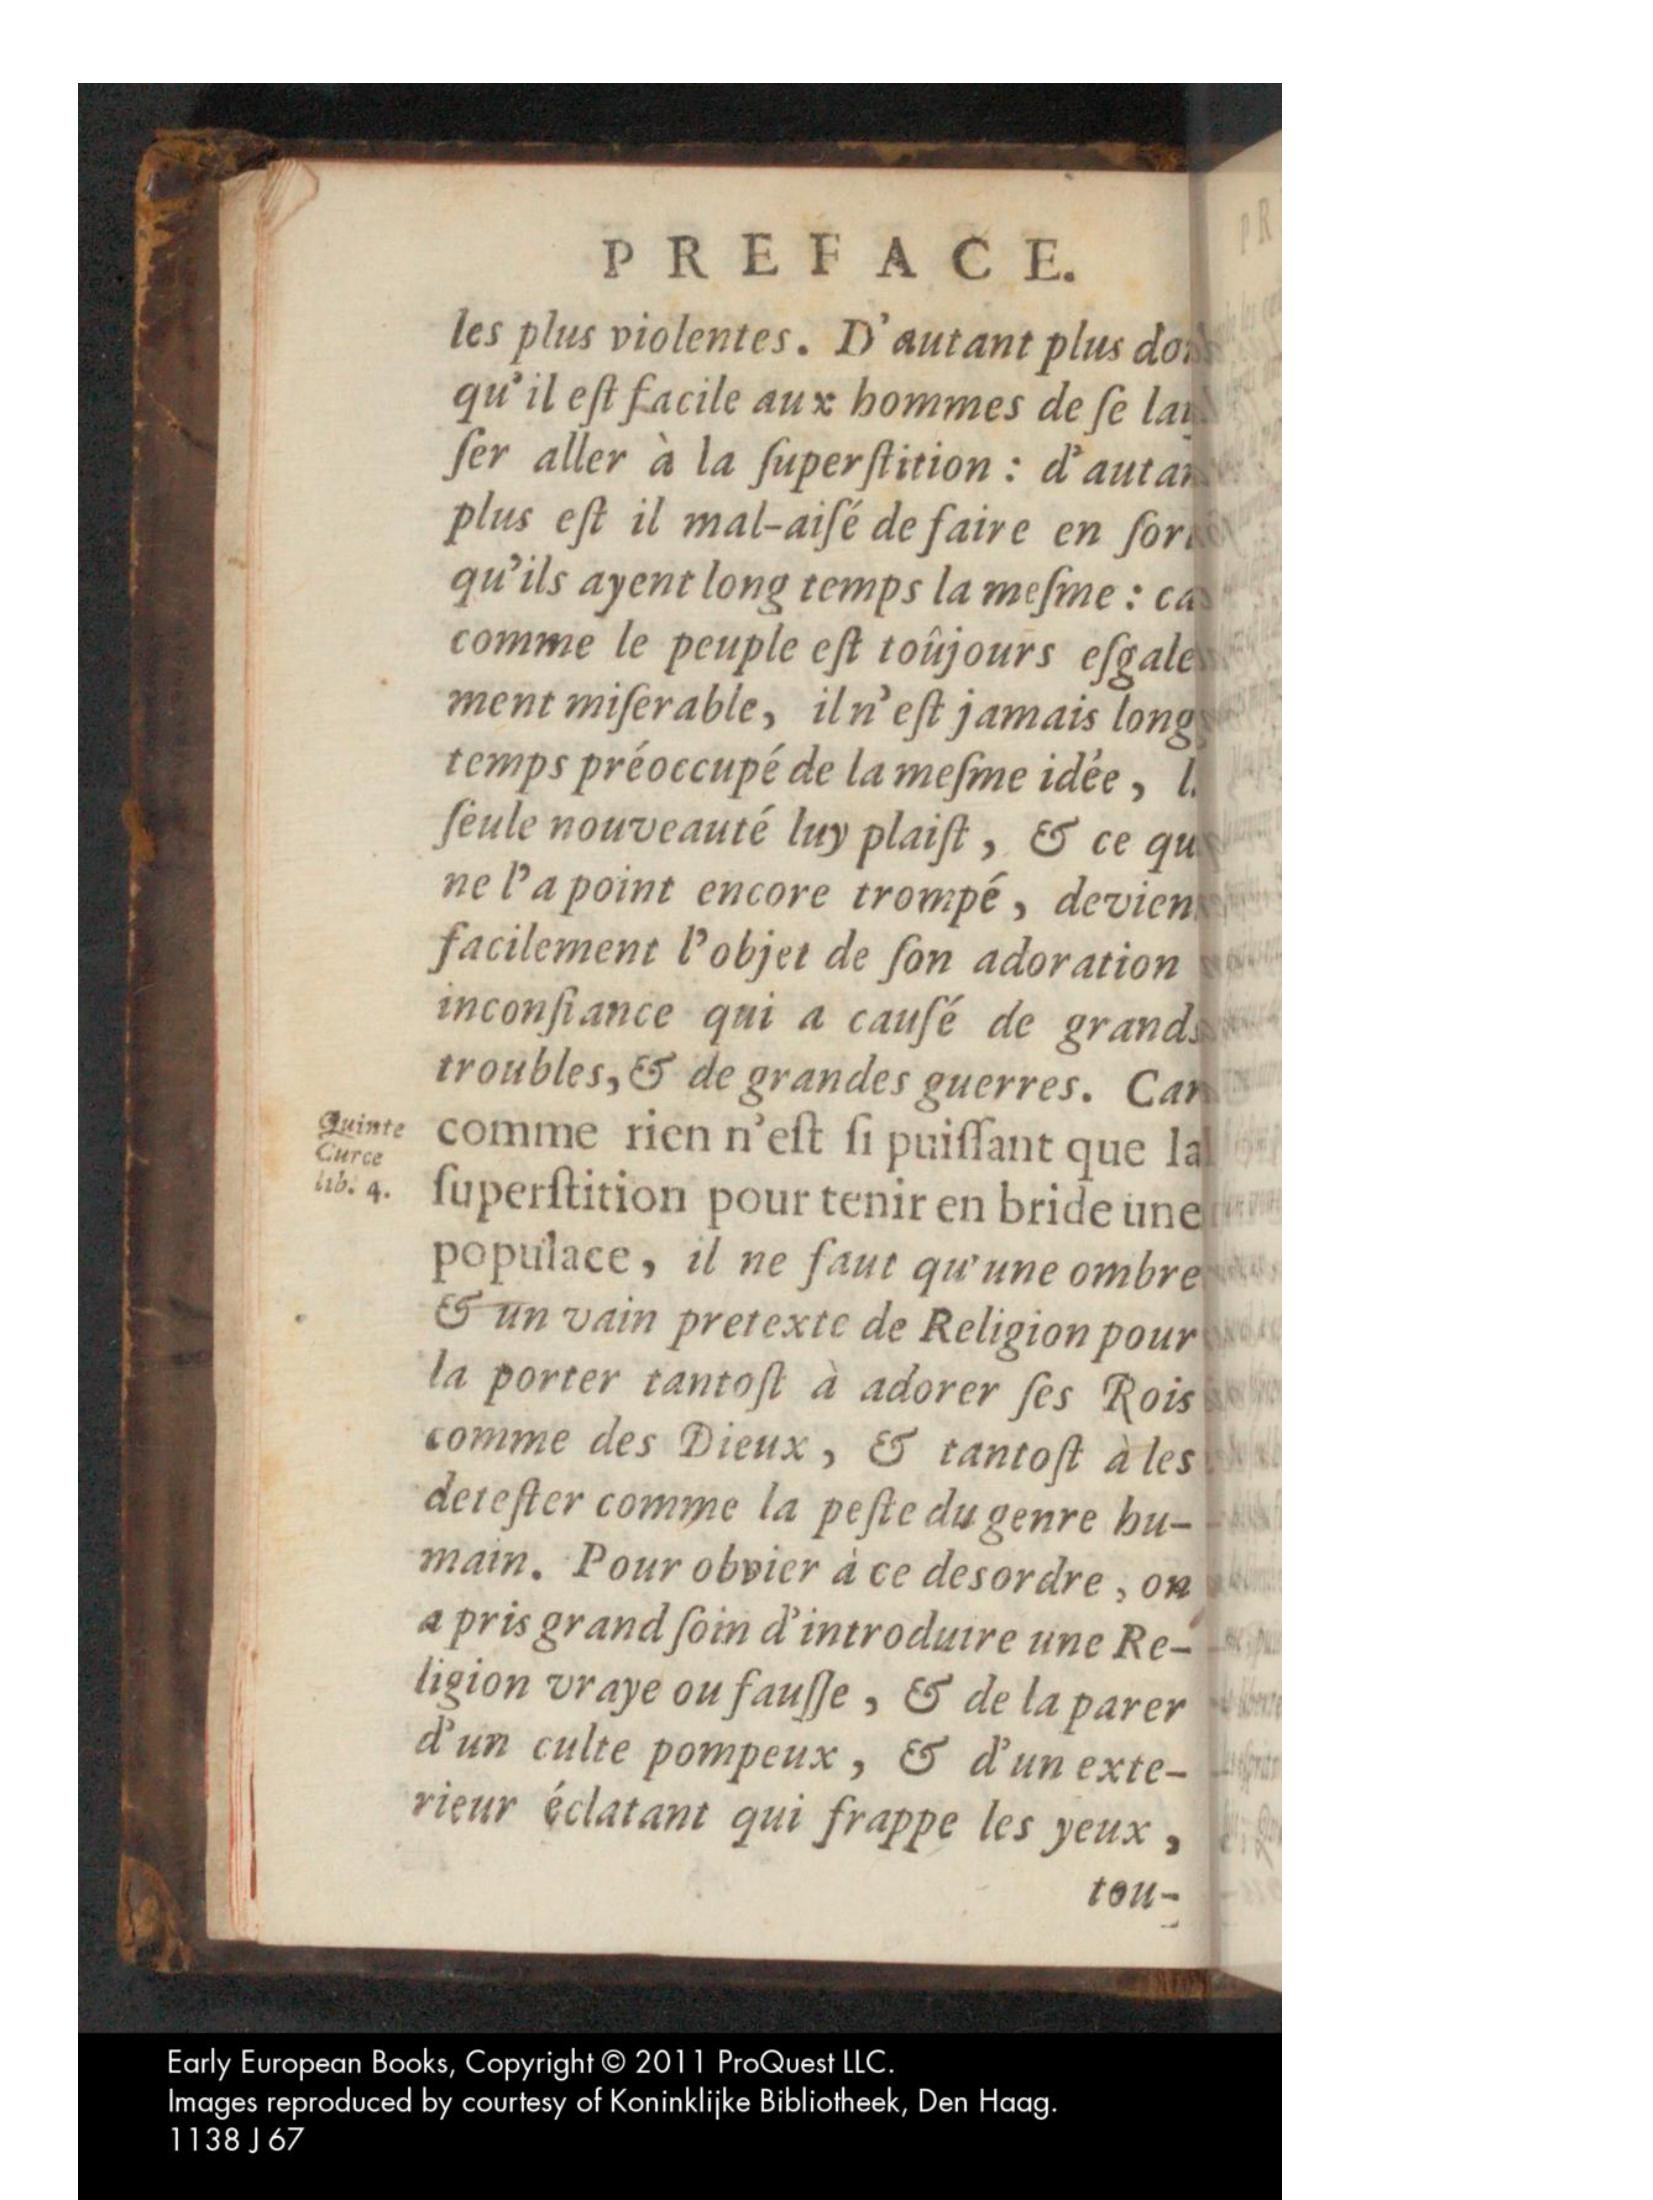 PREFACE.
les plus violentes. D'autant plus don
qu'il eſt facile aux hommes de ſe lai
ſer aller à la ſuperſtition : d'autan
plus eſt il mal-aiſé de faire en ſor
qu'ils ayent long temps la meſme : ca
comme le peuple eſt toûjours eſgale
ment miſerable, il n'eſt jamais long
temps préoccupé de la meſme idée, l
ſeule nouveauté luy plaiſt, & ce qu
ne l'a point encore trompé, devien
facilement l'objet de ſon adoration
inconſtance qui a cauſé de grands
troubles, & de grandes guerres. Car
Quinte
Curce
lib. 4.
comme rien n'eſt ſi puiſſant que la
ſuperſtition pour tenir en bride une
populace, il ne faut qu'une ombre
& un vain pretexte de Religion pour
la porter tantoſt à adorer ſes Rois
comme des Dieux, & tantoſt à les
deteſter comme la peſte du genre hu-
main. Pour obvier à ce desordre, on
a pris grand ſoin d'introduire une Re-
ligion vraye ou fauſſe, & de la parer
d'un culte pompeux, & d'un exte-
rieur éclatant qui frappe les yeux,
tou-
Early European Books, Copyright © 2011 ProQuest LLC.
Images reproduced by courtesy of Koninklijke Bibliotheek, Den Haag.
1138 J 67